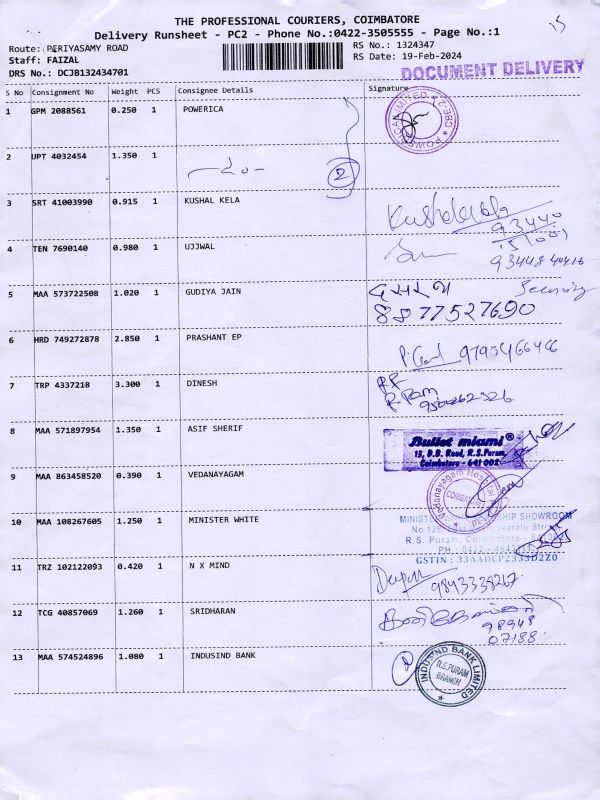 15
THE PROFESSIONAL COURIERS, COIMBATORE
Delivery Runsheet - PC2 - Phone No.:0422-3505555 - Page No.:1
Route: PERIYASAMY ROAD
RS No.: 1324347
Staff: FAIZAL
RS Date: 19-Feb-2024
DRS No.: DCJB132434701
DOCUMENT DELIVERY
S No Consignment No Weight PCS Consignee Details Signature
1 GPM 2088561 0.250 1 POWERICA
2 UPT 4032454 1.350 1
2
3 SRT 41003990 0.915 1 KUSHAL KELA Kushal Kela
93440
15(00)
4 TEN 7690140 0.980 1 UJJWAL
9344840416
5 MAA 573722508 1.020 1 GUDIYA JAIN Security
8877527690
6 HRD 749272878 2.850 1 PRASHANT EP
9795466466
7 TRP 4337218 3.300 1 DINESH
8 MAA 571897954 1.350 1 ASIF SHERIF
Bullet miami®
13, D.B. Road, R.S.Puram,
Coimbatore - 641 002
9 MAA 863458520 0.390 1 VEDANAYAGAM
Vedanayagam Hospital
COIMBATORE
10 MAA 108267605 1.250 1 MINISTER WHITE
SHOWROOM
R.S. Puram, Coimbatore
GSTIN : 33AADCP2333D2Z0
11 TRZ 102122093 0.420 1 N X MIND
9843338267
12 TCG 40857069 1.260 1 SRIDHARAN
98948
07188
13 MAA 574524896 1.080 1 INDUSIND BANK
INDUSIND BANK LIMITED
R.S.PURAM
BRANCH